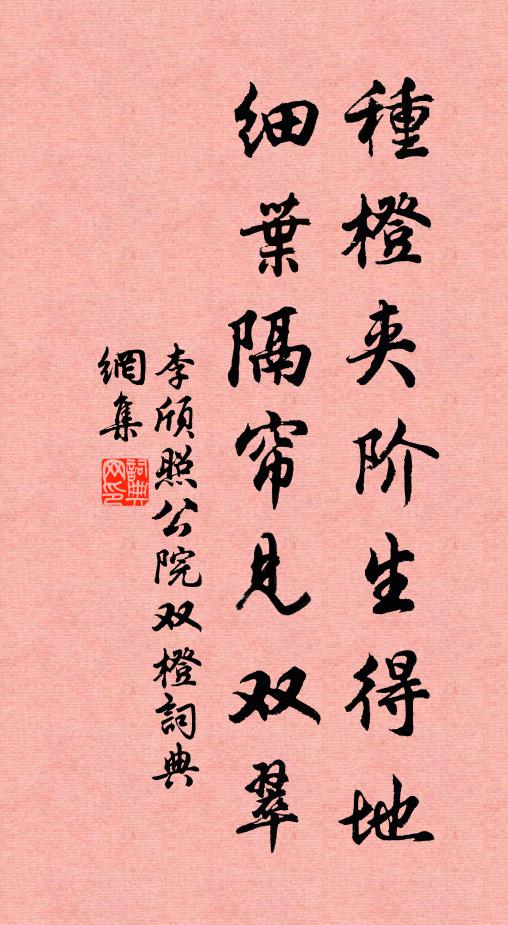 種橙夹阶生得地
细葉隔帘見双翠
李頎照公院双橙詞典
網集
詞典网印